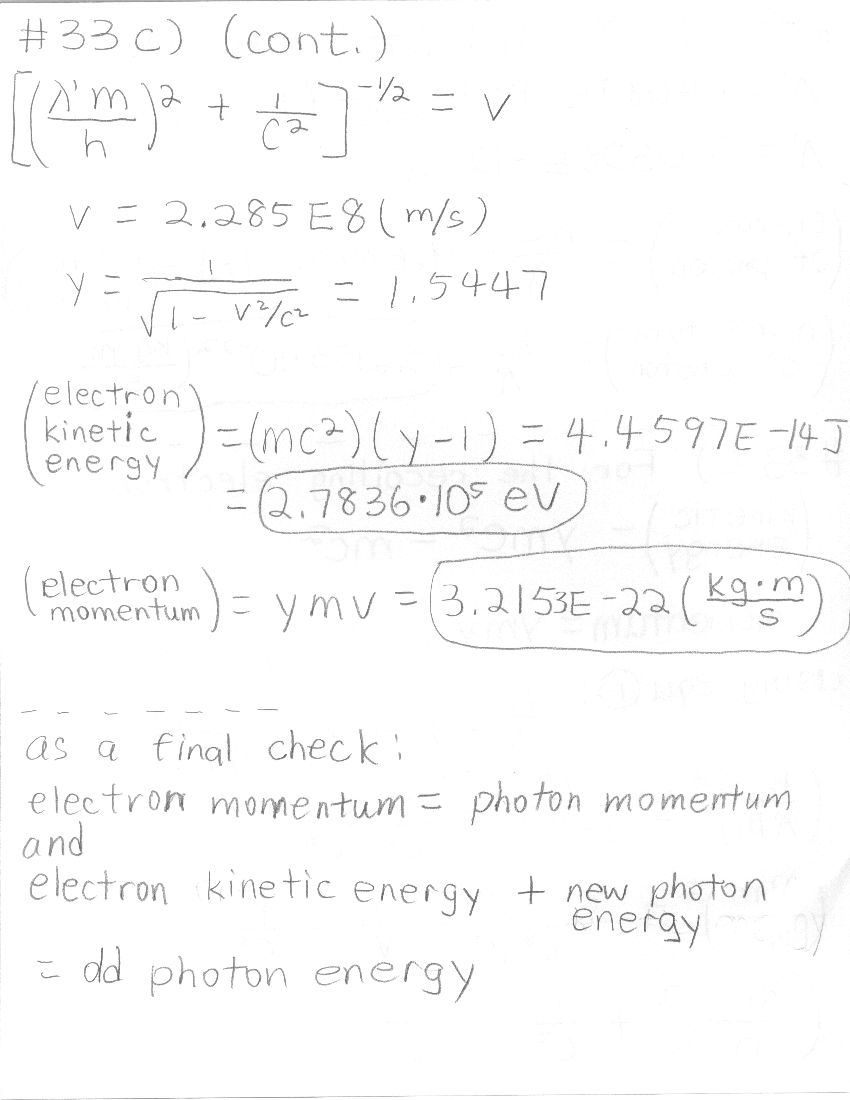 #33c) (cont.)
[(λ'm/h)² + 1/c²]^-1/2 = v
v = 2.285 E8 (m/s)
γ = 1/√(1 - v²/c²) = 1.5447
(electron kinetic energy) = (mc²)(γ-1) = 4.4597E-14J
= 2.7836·10⁵ eV
(electron momentum) = γmv = 3.2153E-22 (kg·m/s)
as a final check:
electron momentum = photon momentum
and
electron kinetic energy + new photon energy
= old photon energy